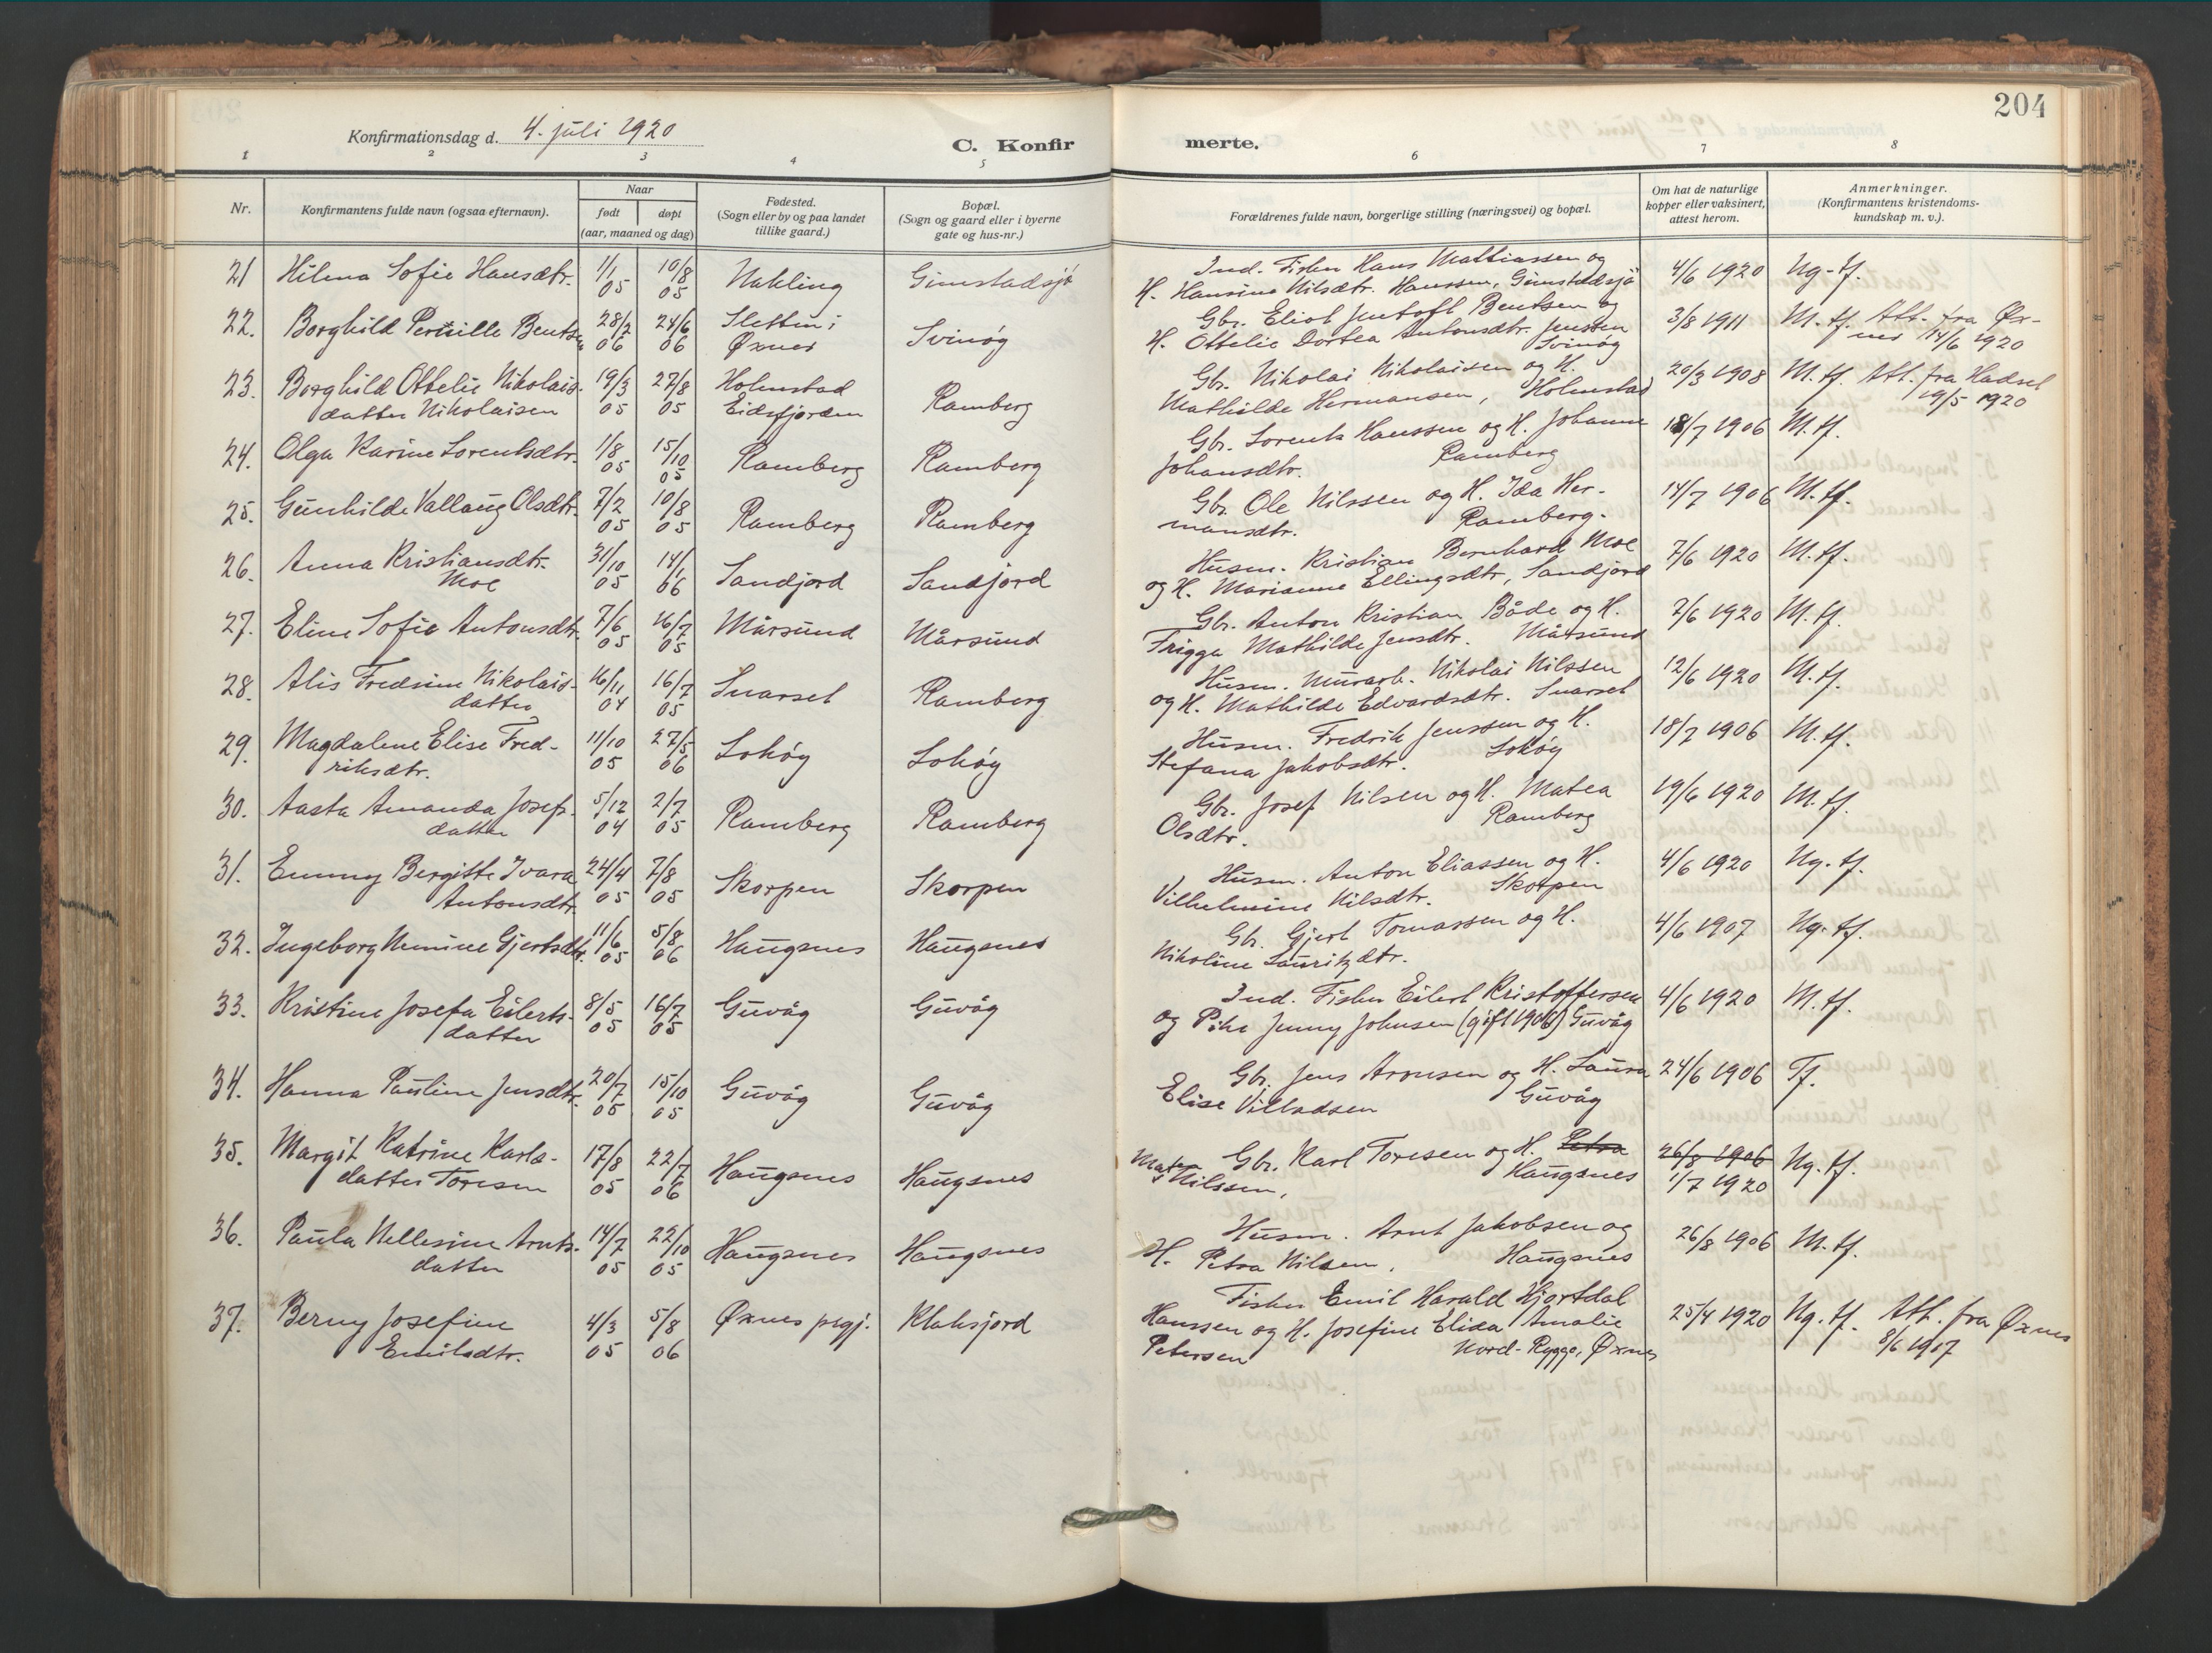 204
Konfirmationsdag d. 4. juli 1920
C. Konfir
merte.
1 2 3 4 5 6 7 8
Nr.
Konfirmantens fulde navn (ogsaa efternavn).
Naar
født
døpt
(aar, maaned og dag)
Fødested.
(Sogn eller by og paa landet
tillike gaard.)
Bopæl.
(Sogn og gaard eller i byerne
gate og hus-nr.)
Forældrenes fulde navn, borgerlige stilling (næringsvei) og bopæl.
Om hat de naturlige
kopper eller vaksinert,
attest herom.
Anmerkninger.
(Konfirmantens kristendoms-
kundskap m. v.).
21 Hilma Sofie Hansdtr. 1/1 05 10/8 05 Nykling Gimstadsjö
Ind. Fisker Hans Mattiassen og
H. Hansine Nilsdtr. Hanssen, Gimstadsjö
4/6 1920 Ng-tf.
22. Borghild Pernille Bentsen 28/2 06 24/6 06 Sletten i
Øxnes
Svinøy
Gbr. Eliot Jentoft Bentsen og
H. Ottelie Dortea Antonsdtr. Jenssen
Svinøy
3/8 1911 M. tf. Att. fra Øx-
nes 14/6 1920
23. Borghild Ottelie Nikolais-
datter Nikolaisen
19/3 05 27/8 05 Holmstad
Eidsfjorden
Ramberg
Gbr. Nikolai Nikolaisen og H.
Mathilde Hermansen, Holmstad
20/3 1908 M. tf. Att. fra Hadsel
19/5 1920
24. Olga Karine Lorentsdtr. 1/8 05 15/10 05 Ramberg Ramberg
Gbr. Lorents Hanssen og H. Johanne
Johansdtr. Ramberg
18/7 1906 M. tf.
25. Gunhilde Vallaug Olsdtr. 7/2 05 10/8 05 Ramberg Ramberg
Gbr. Ole Nilssen og H. Ida Her-
mansdtr. Ramberg.
14/7 1906 M. tf.
26. Anna Kristiansdtr.
Moe
31/10 05 14/1 06 Sandjord Sandjord
Husm. Kristian Bernhard Moe
og H. Marianne Ellingsdtr, Sandjord
7/6 1920 M. tf.
27. Eline Sofie Antonsdtr. 7/6 05 16/7 05 Mårsund Mårsund
Gbr. Anton Kristian Både og H.
Frigga Mathilde Jensdtr. Mårsund
7/6 1920 M. tf.
28. Alis Fredrine Nikolais-
datter
16/11 04 16/7 05 Snarset Ramberg
Husm. murarb. Nikolai Nilssen
og H. Mathilde Edvardsdtr. Snarset
12/6 1920 M. tf.
29. Magdalene Elise Fred-
riksdtr.
11/10 05 27/5 06 Lokøy Lokøy
Husm. Fredrik Jenssen og H.
Stefana Jakobsdtr. Lokøy
18/7 1906 M. tf.
30. Aasta Amanda Josefs-
datter
5/12 04 2/7 05 Ramberg Ramberg
Gbr. Josef Nilsen og H. Matea
Olsdtr. Ramberg
19/6 1920 M. tf.
31. Emmy Bergitte Ivara
Antonsdtr.
24/4 05 7/8 05 Skorpen Skorpen
Husm. Anton Eliassen og H.
Vilhelmine Nilsdtr. Skorpen
4/6 1920 Ng. tf.
32. Ingeborg Nemine Gjertsdtr. 11/6 05 5/8 06 Haugsnes Haugsnes
Gbr. Gjert Tomassen og H.
Nikoline Lauritzdtr.
4/6 1907 Ng. tf.
33. Kristine Josefa Eilerts-
datter
8/5 05 16/7 05 Guvåg Guvåg
Ind. Fisker Eilert Kristoffersen
og Pike Jenny Johnsen (gift 1906) Guvåg
4/6 1920 M. tf.
34. Hanna Pauline Jensdtr. 20/7 05 15/10 05 Guvåg Guvåg
Gbr. Jens Aronsen og H. Laura
Elise Villadsen Guvåg
24/6 1906 Tf.
35. Margit Katrine Karls-
datter Toresen
17/8 05 22/7 06 Haugsnes Haugsnes
Gbr. Karl Toresen og H. Petra
Nilssen, Haugsnes
26/8 1906
1/7 1920
Ng. tf.
36. Paula Nellesine Arnts-
datter
14/7 05 22/10 05 Haugsnes Haugsnes
Husm. Arnt Jakobsen og
H. Petra Nilsen, Haugsnes
26/8 1906 M. tf.
37. Berny Josefine
Emilsdtr.
4/3 05 5/8 06 Øxnes prgj. Klaksjord
Fisker Emil Harald Hjortdal
Hanssen og H. Josefine Elida Amalie
Petersen Nord-Rygge, Øxnes
25/4 1920 Ng. tf. Att. fra Øxnes
8/6 1907